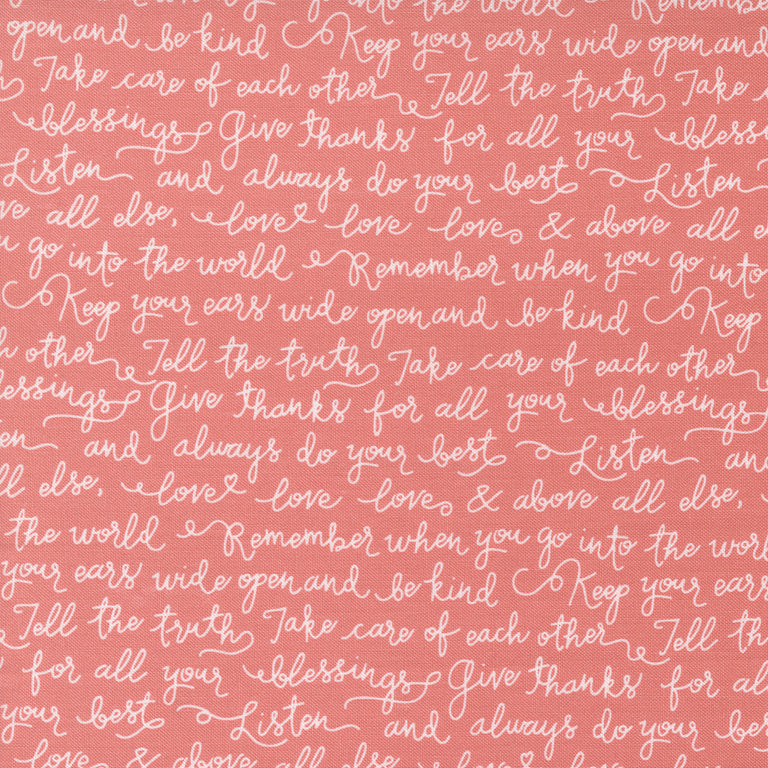 open and be kind Keep your ears wide open and
Take care of each other Tell the truth Take
blessings Give thanks for all your
Listen and always do your best Listen
all else, love love love & above all
go into the world Remember when you go into
Keep your ears wide open and be kind Keep
other Tell the truth Take care of each other
Give thanks for all your blessings
and always do your best Listen
else, love love love & above all else,
the world Remember when you go into the
your ears wide open and be kind Keep your ears
Tell the truth Take care of each other Tell
for all your blessings Give thanks for
your best Listen and always do your
love & above all else love love